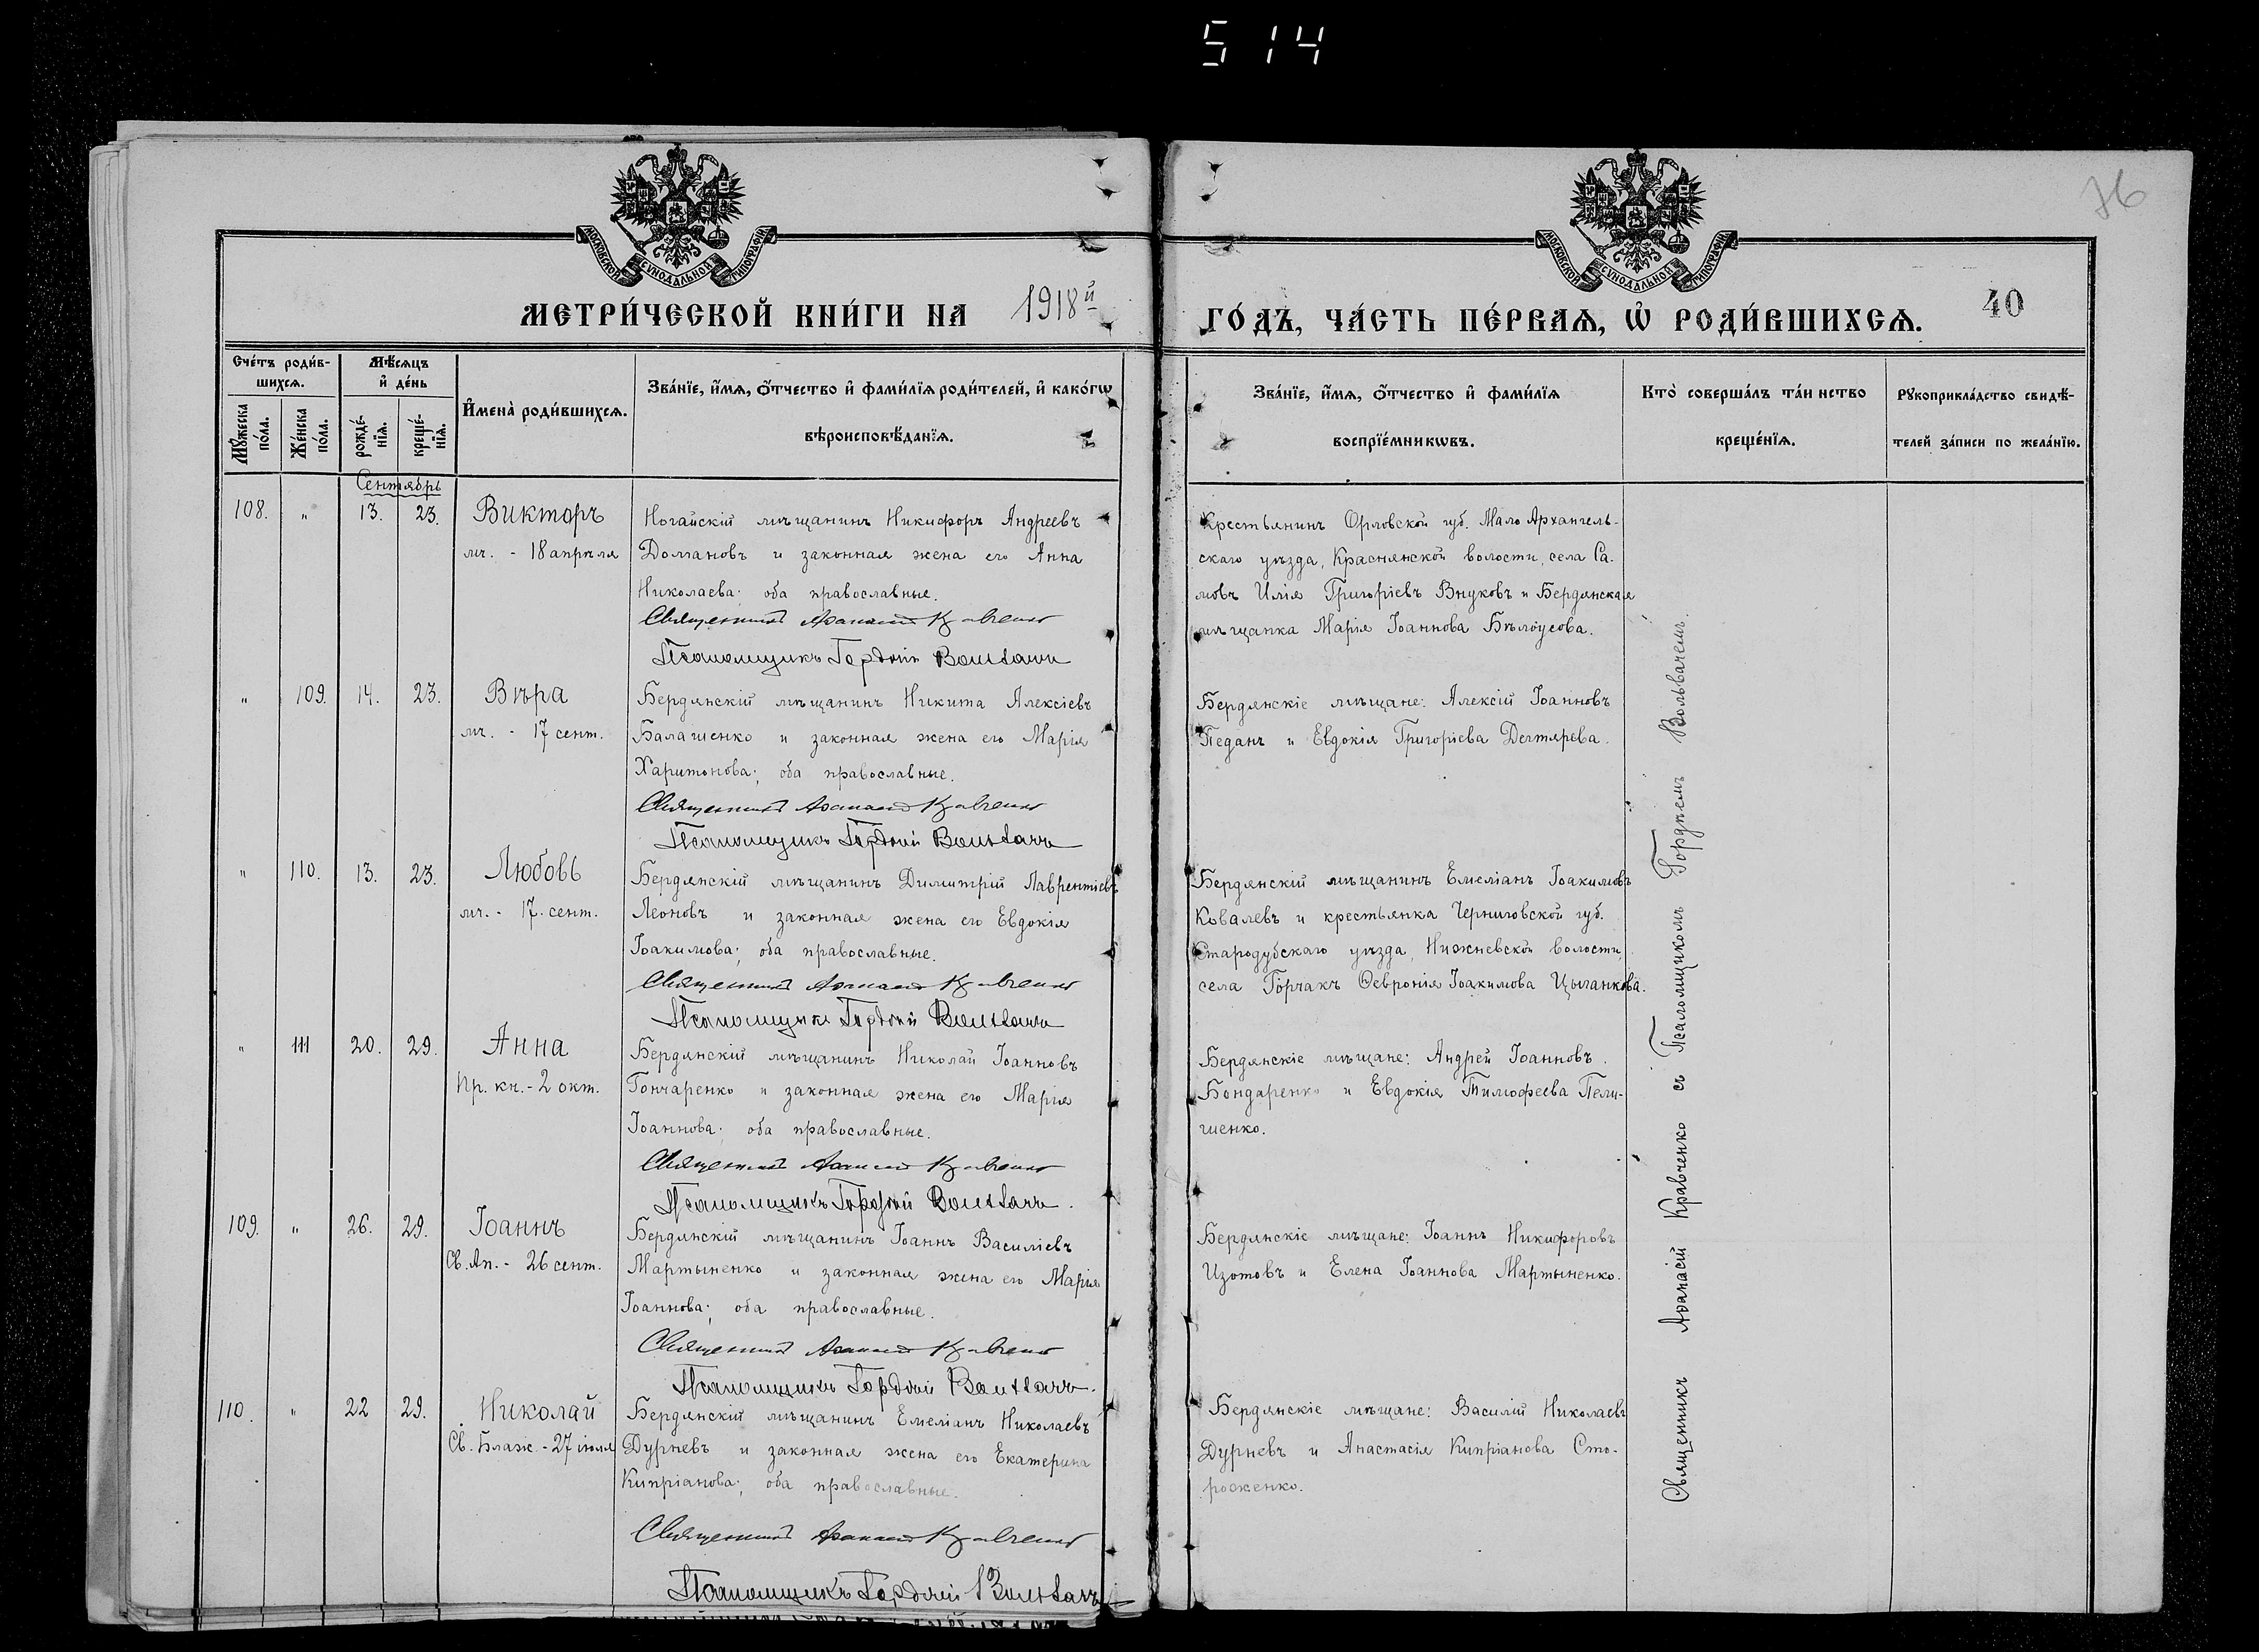 5 14
76
МОСКОВСКОЙ СУНОДАЛЬНОЙ ТИПОГРАФІИ
МОСКОВСКОЙ СУНОДАЛЬНОЙ ТИПОГРАФІИ
МЕТРИ́ЧЕСКОЙ КНИ́ГИ НА 1918й
ГО́ДЪ, ЧА́СТЬ ПЕ́РВАѦ, Ѡ҆ РОДИ́ВШИХСѦ. 40
Сче́тъ роди́в-
шихсѧ.
Мꙋ́жеска по́ла.
Же́нска по́ла.
Мѣ́сѧцъ
и҆ де́нь
рожде́-
нїѧ.
креще́-
нїѧ.
И҆мена̀ роди́вшихсѧ.
Зва́нїе, и҆́мѧ, ѻ҆́тчество и҆ фами́лїѧ роди́телей, и҆ како́гѡ
вѣроисповѣ́данїѧ.
Зва́нїе, и҆́мѧ, ѻ҆́тчество и҆ фами́лїѧ
воспрїе́мникѡвъ.
Кто̀ соверша́лъ та́инство
креще́нїѧ.
Рꙋкоприкла́дство свидѣ́-
телей за́писи по жела́нїю.
Сентябрь
108. „ 13. 23. Викторъ
мч. - 18 апрѣля
Ногайскій мѣщанинъ Никифоръ Андреевъ
Долмановъ и законная жена его Анна
Николаева; оба православные.
Священникъ Аѳанасій Кравченко
Псаломщикъ Гордѣй Вольвачъ
Крестьянинъ Орловской губ. Мало Архангель-
скаго уѣзда, Краснянской волости, села Са-
мовъ Илія Григоріевъ Внуковъ и Бердянская
мѣщанка Марія Іоаннова Бѣлоусова.
„ 109. 14. 23. Вѣра
мч. - 17 сент.
Бердянскій мѣщанинъ Никита Алексіевъ
Балашенко и законная жена его Марія
Харитонова; оба православные.
Священникъ Аѳанасій Кравченко
Псаломщикъ Гордѣй Вольвачъ
Бердянскіе мѣщане: Алексій Іоанновъ
Педанъ и Евдокія Григоріева Дегтярева.
„ 110. 13. 23. Любовь
мч. - 17. сент.
Бердянскій мѣщанинъ Димитрій Лаврентіевъ
Леоновъ и законная жена его Евдокія
Іоакимова; оба православные.
Священникъ Аѳанасій Кравченко
Псаломщикъ Гордѣй Вольвачъ
Бердянскій мѣщанинъ Емеліанъ Іоакимовъ
Ковалевъ и крестьянка Черниговской губ.
Стародубскаго уѣзда, Нижневской волости,
села Горчакъ Ѳевронія Іоакимова Цыганкова.
„ 111 20. 29. Анна
Пр. кн. - 2 окт.
Бердянскій мѣщанинъ Николай Іоанновъ
Гончаренко и законная жена его Марія
Іоаннова; оба православные.
Священникъ Аѳанасій Кравченко
Псаломщикъ Гордѣй Вольвачъ.
Бердянскіе мѣщане: Андрей Іоанновъ
Бондаренко и Евдокія Тимофеева Пели-
шенко.
109. „ 26. 29. Іоаннъ
Св. Ап. - 26 сент.
Бердянскій мѣщанинъ Іоаннъ Василіевъ
Мартыненко и законная жена его Марія
Іоаннова; оба православные.
Священникъ Аѳанасій Кравченко
Псаломщикъ Гордѣй Вольвачъ.
Бердянскіе мѣщане: Іоаннъ Никифоровъ
Изотовъ и Елена Іоаннова Мартыненко.
110. „ 22 29. Николай
Св. Блаж. - 27 іюля
Бердянскій мѣщанинъ Емеліанъ Николаевъ
Дурневъ и законная жена его Екатерина
Кипріанова; оба православные.
Священникъ Аѳанасій Кравченко
Псаломщикъ Гордѣй Вольвачъ
Бердянскіе мѣщане: Василій Николаевъ
Дурневъ и Анастасія Кипріанова Сто-
роженко.
Священникъ Аѳанасій Кравченко съ Псаломщикомъ Гордѣемъ Вольвачемъ.